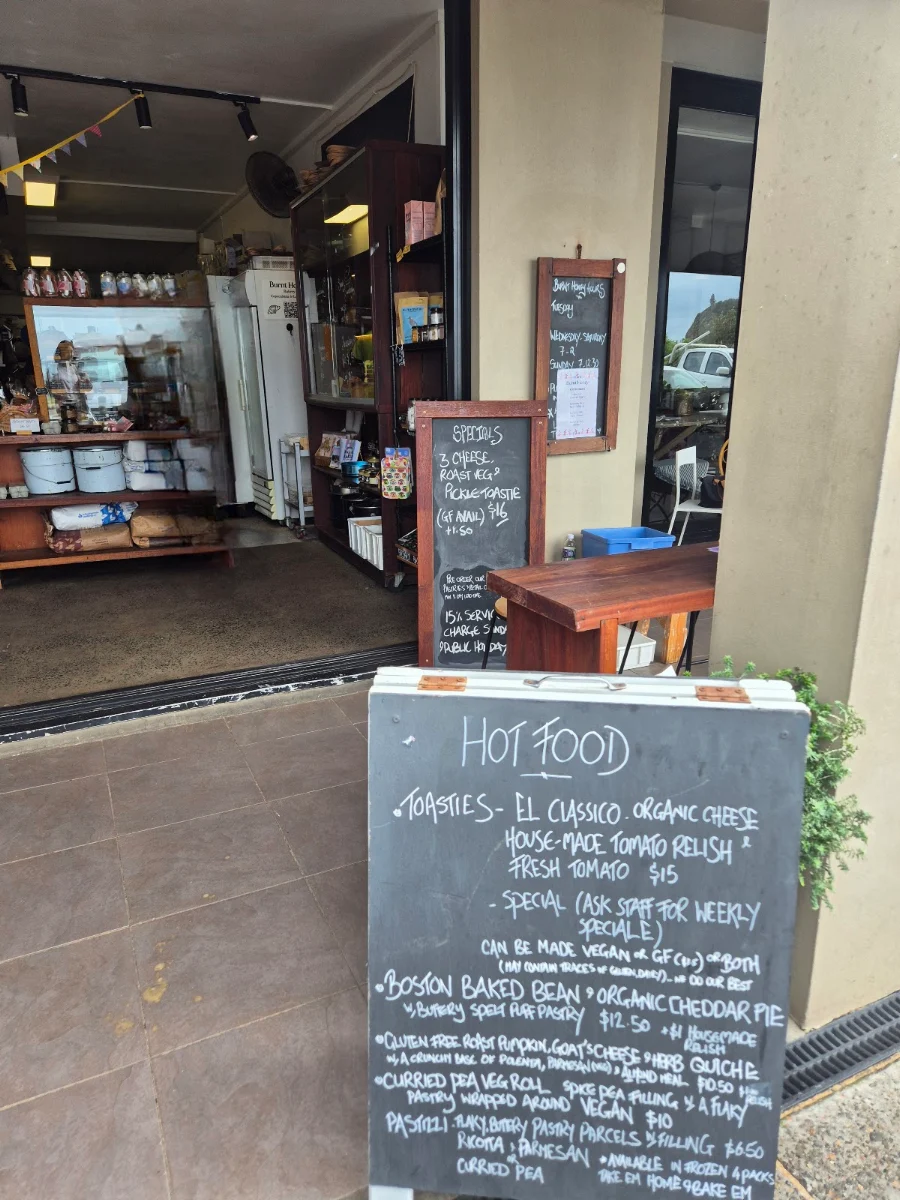 Burnt Ho
BURNT HONEY HOURS
TUESDAY
WEDNESDAY-SATURDAY
7-2
SUNDAY 7-12.30
SPECIALS
3 CHEESE,
ROAST VEG &
PICKLE TOASTIE
(GF AVAIL) $16
+1.50
PRE ORDER OUR
15% SERVIC
CHARGE SUNDA
& PUBLIC HOLIDAY
HOT FOOD
• TOASTIES - EL CLASSICO - ORGANIC CHEESE
HOUSE-MADE TOMATO RELISH &
FRESH TOMATO $15
- SPECIAL (ASK STAFF FOR WEEKLY
SPECIALE)
CAN BE MADE VEGAN OR GF OR BOTH
(MAY CONTAIN TRACES OF GLUTEN, DAIRY)... WE DO OUR BEST
• BOSTON BAKED BEAN & ORGANIC CHEDDAR PIE
W/ BUTTERY SPELT PUFF PASTRY $12.50 +$1 HOUSEMADE
RELISH
• GLUTEN FREE ROAST PUMPKIN, GOAT'S CHEESE & HERB QUICHE
W/ A CRUNCHY BASE OF POLENTA, PARMESAN & ALMOND MEAL $10.50
RELISH
• CURRIED PEA VEG ROLL SPICE PEA FILLING W/ A FLAKY
PASTRY WRAPPED AROUND VEGAN $10
PASTIZZI - FLAKY, BUTTERY PASTRY PARCELS W/ FILLING $6.50
RICOTTA & PARMESAN
OR
CURRIED PEA
* AVAILABLE IN FROZEN 4 PACKS
TAKE EM HOME & BAKE EM